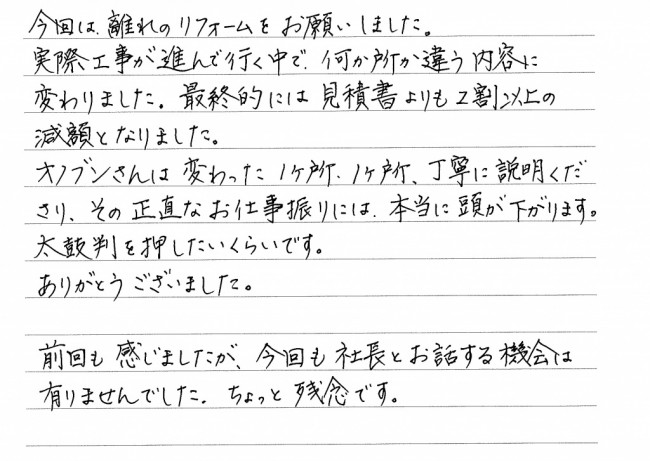 今回は、離れのリフォームをお願いしました。
実際工事が進んで行く中で、何か所か違う内容に
変わりました。最終的には見積書よりも2割以上の
減額となりました。
オノブンさんは変わった1ヶ所、1ヶ所、丁寧に説明くだ
さり、その正直なお仕事振りには、本当に頭が下がります。
太鼓判を押したいくらいです。
ありがとうございました。
前回も感じましたが、今回も社長とお話する機会は
有りませんでした。ちょっと残念です。